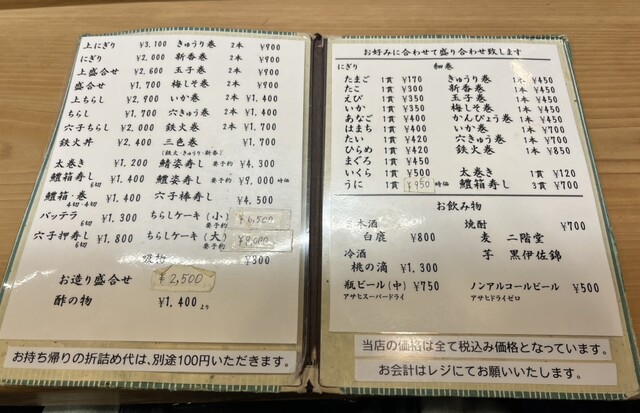 上にぎり ¥3,100 きゅうり巻 2本 ¥900
にぎり ¥2,000 新香巻 2本 ¥900
上盛合せ ¥2,600 玉子巻 2本 ¥900
盛合せ ¥1,700 梅しそ巻 2本 ¥900
上ちらし ¥2,900 いか巻 2本 ¥1,400
ちらし ¥1,700 穴きゅう巻 2本 ¥1,400
穴子ちらし ¥2,000 鉄火巻 2本 ¥1,700
鉄火丼 ¥2,400 三色巻 ¥1,700
(鉄火・きゅうり・新香)
太巻き ¥1,200 鯖姿寿し 要予約 ¥4,300
鱧箱寿し 6切 ¥1,400 鱧姿寿し 要予約 ¥9,000 時価
鱧箱・巻 4切・4切 ¥1,400 穴子棒寿し ¥4,500
バッテラ 6切 ¥1,300 ちらしケーキ(小) 要予約 ¥6,500
穴子押寿し 6切 ¥1,800 ちらしケーキ(大) 要予約
吸物 ¥300
お造り盛合せ ¥2,500
酢の物 ¥1,400より
お持ち帰りの折詰め代は、別途100円いただきます。
お好みに合わせて盛り合わせ致します
にぎり 細巻
たまご 1貫 ¥170 きゅうり巻 1本 ¥450
たこ 1貫 ¥300 新香巻 1本 ¥450
えび 1貫 ¥350 玉子巻 1本 ¥450
いか 1貫 ¥350 梅しそ巻 1本 ¥450
あなご 1貫 ¥400 かんぴょう巻 1本 ¥450
はまち 1貫 ¥400 いか巻 1本 ¥700
たい 1貫 ¥400 穴きゅう巻 1本 ¥700
ひらめ 1貫 ¥420 鉄火巻 1本 ¥850
まぐろ 1貫 ¥450
いくら 1貫 ¥500 太巻き 1貫 ¥120
うに 1貫 ¥950 時価 鱧箱寿し 3貫 ¥700
お飲み物
日本酒 焼酎 ¥700
白鹿 ¥800 麦 二階堂
冷酒 芋 黒伊佐錦
桃の滴 ¥1,300
瓶ビール(中) ¥750 ノンアルコールビール ¥500
アサヒスーパードライ アサヒドライゼロ
当店の価格は全て税込み価格となっています。
お会計はレジにてお願いいたします。